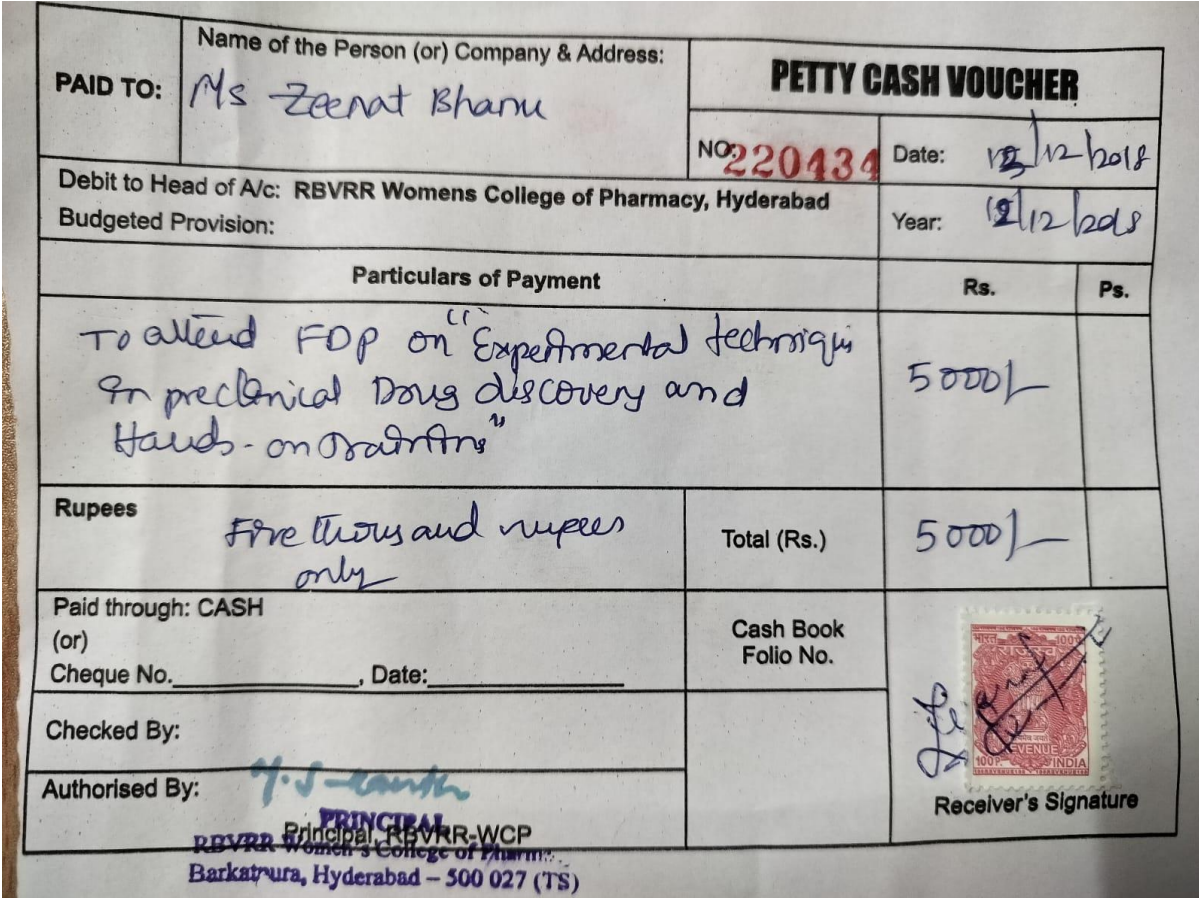 Name of the Person (or) Company & Address:
PAID TO:
Ms Zeenat Bhanu
PETTY CASH VOUCHER
NO: 220434
Date: /12/2018
Debit to Head of A/c: RBVRR Womens College of Pharmacy, Hyderabad
Budgeted Provision:
Year: /12/2018
Particulars of Payment
Rs.
Ps.
To attend FDP on "Experimental techniques
in preclinical Drug discovery and
Hands-on training"
5000/-
Rupees
Five thousand rupees
only
Total (Rs.)
5000/-
Paid through: CASH
(or)
Cheque No.____________, Date:____________
Cash Book
Folio No.
Checked By:
Authorised By:
PRINCIPAL
Principal, RBVRR-WCP
RBVRR Women's College of Pharm
Barkatpura, Hyderabad – 500 027 (TS)
भारत 100P.
राजस्व
REVENUE
100P. INDIA
Receiver's Signature